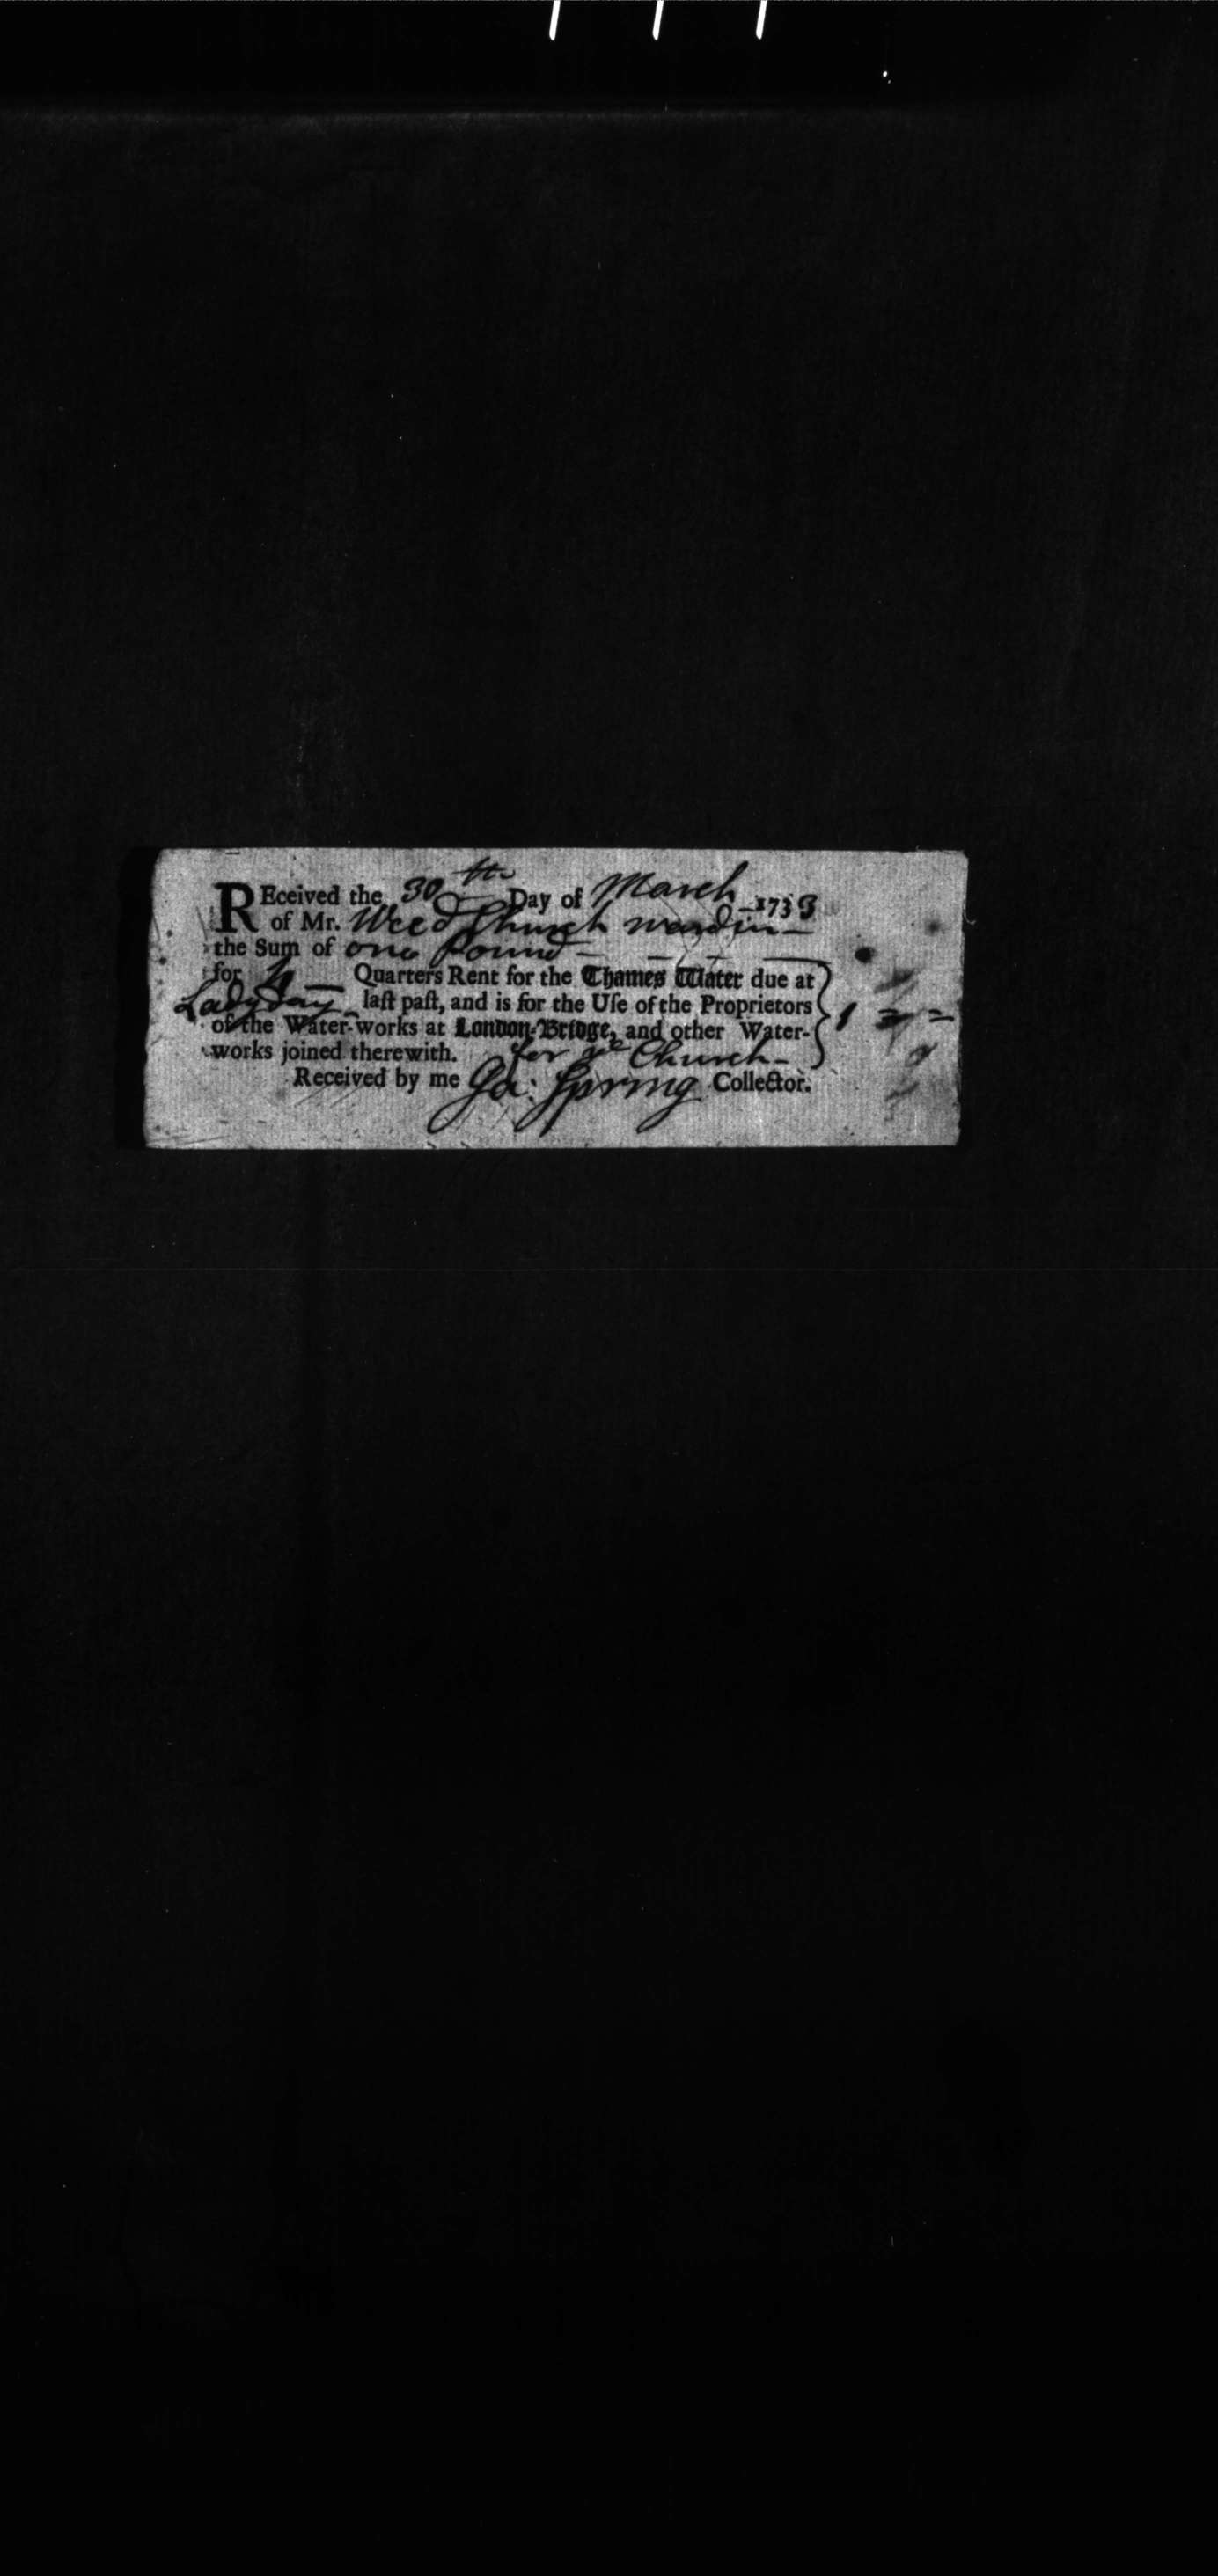 REceived the 30th Day of March 1733
of Mr. Weed Church wardin
the Sum of one Pound
for 4 Quarters Rent for the Thames Water due at
Lady Day last past, and is for the Use of the Proprietors
of the Water-works at London-Bridge, and other Water- 1 = =
works joined therewith. for ye Church
Received by me Ga: Spring Collector.